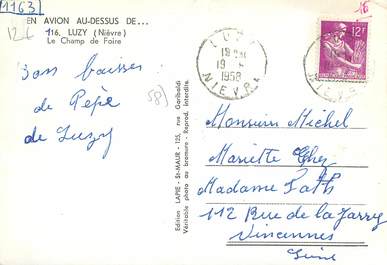 1163
EN AVION AU-DESSUS DE...
116. LUZY (Nièvre)
Le Champ de Foire
12€
16
LUZY
19
1958
NIEVRE
12F
Bons baisers
de Pépé
de Luzy
587
Edition LAPIE - St-MAUR - 125, rue Garibaldi
Véritable photo au bromure - Reprod. interdite.
Monsieur Michel
Mariette Chez
Madame
112 Rue de la Jarry
Vincennes
Seine